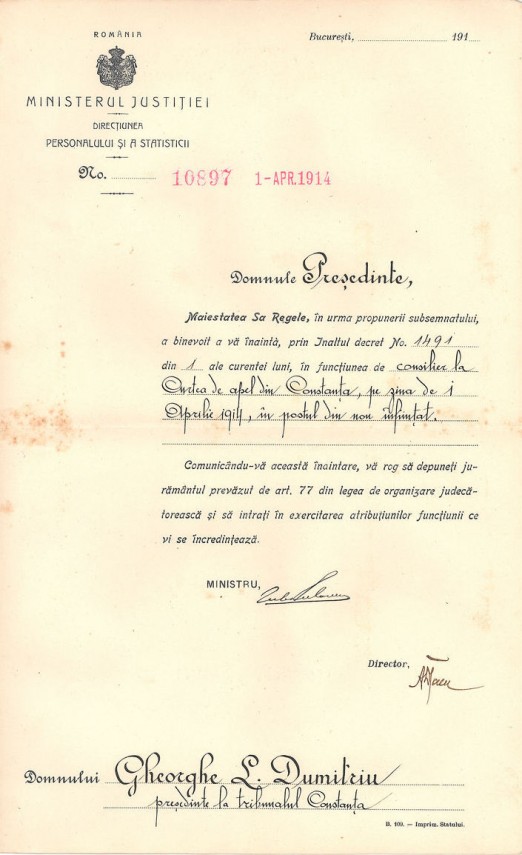 ROMÂNIA
București, 191
MINISTERUL JUSTIȚIEI
DIRECȚIUNEA
PERSONALULUI ȘI A STATISTICII
No. 10897 1-APR.1914
Domnule Președinte,
Maiestatea Sa Regele, în urma propunerii subsemnatului,
a binevoit a vă înaintà, prin Inaltul decret No. 1491
din 1 ale curentei luni, în funcțiunea de consilier la
Curtea de apel din Constanța, pe ziua de 1
Aprilie 1914, în postul din nou înființat.
Comunicându-vă această înaintare, vă rog să depuneți ju-
rământul prevăzut de art. 77 din legea de organizare judecă-
torească și să intrați în exercitarea atribuțiunilor funcțiunii ce
vi se încredințează.
MINISTRU,
Director,
Domnului Gheorghe L. Dumitriu
președinte la tribunalul Constanța
B. 109. — Imprim. Statului.